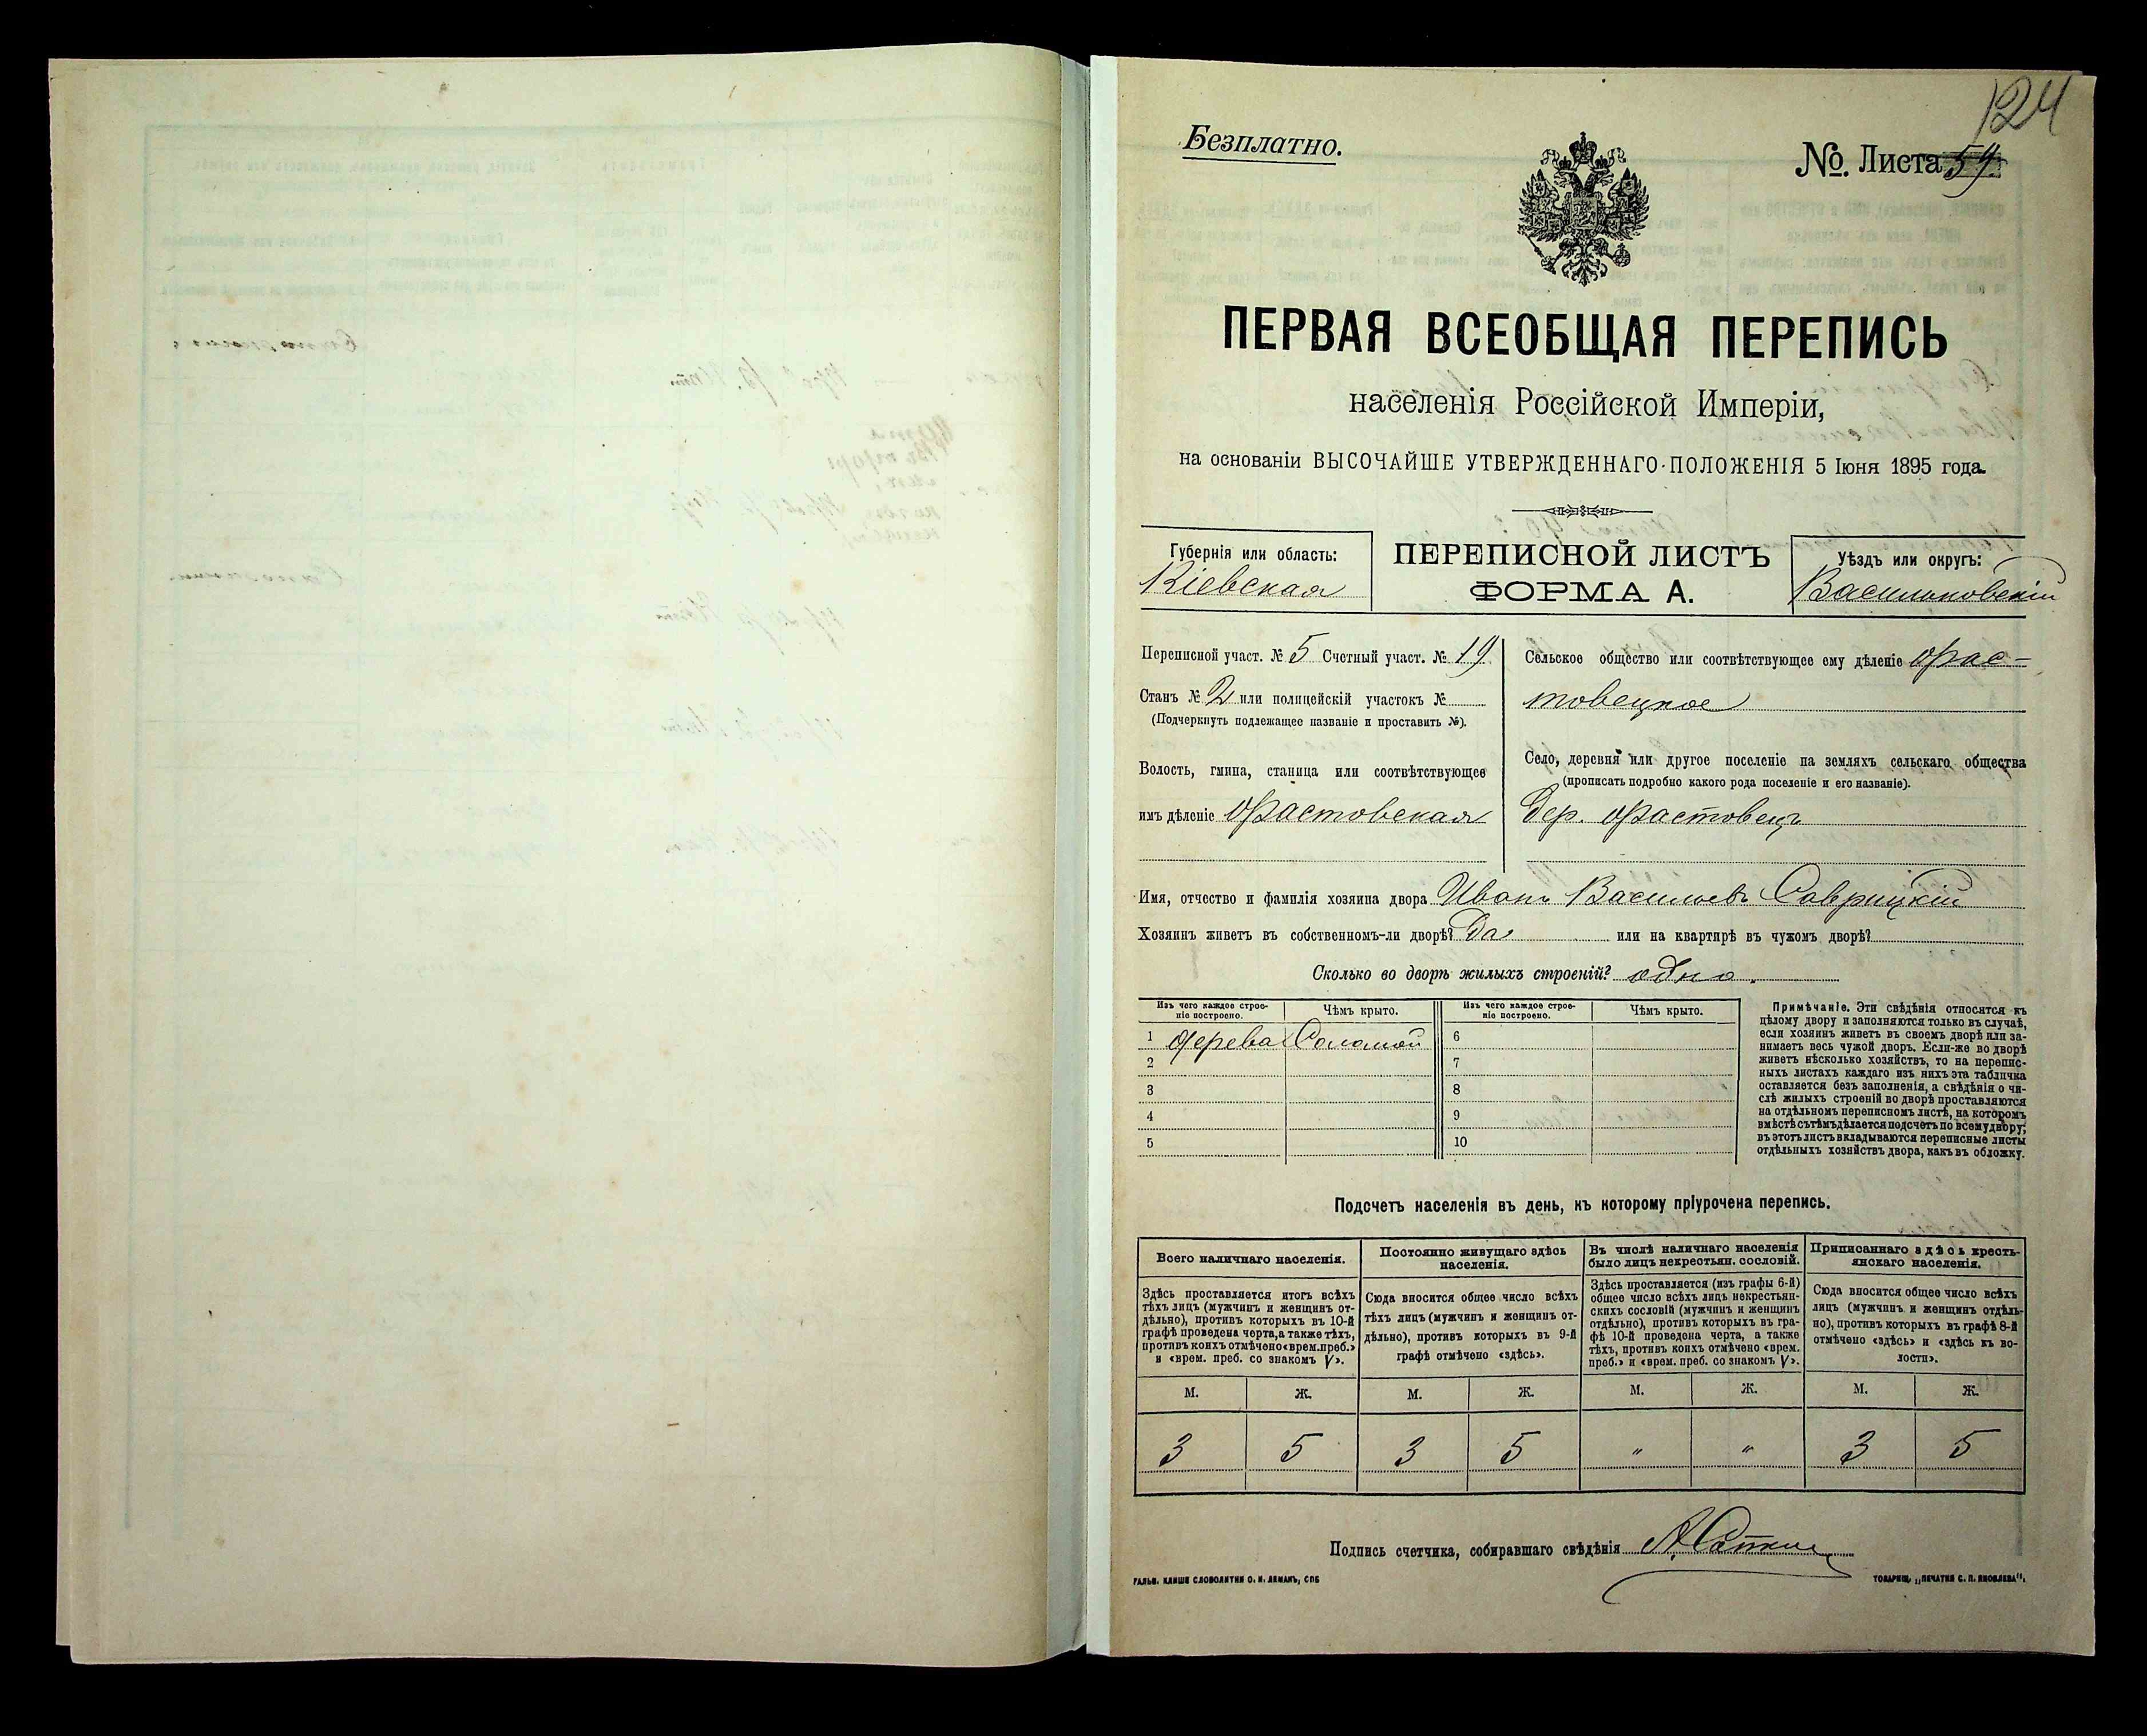 124
Безплатно.
№ Листа 59.
ПЕРВАЯ ВСЕОБЩАЯ ПЕРЕПИСЬ
населенія Россійской Имперіи,
на основаніи ВЫСОЧАЙШЕ УТВЕРЖДЕННАГО ПОЛОЖЕНІЯ 5 Іюня 1895 года.
Губернія или область:
Кіевская
ПЕРЕПИСНОЙ ЛИСТЪ
ФОРМА А.
Уѣздъ или округъ:
Васильковскій
Переписной участ. № 5 Счетный участ. № 19
Станъ № 2 или полицейскій участокъ №
(Подчеркнуть подлежащее названіе и проставить №).
Волость, гмина, станица или соотвѣтствующее
имъ дѣленіе Фастовская
Сельское общество или соотвѣтствующее ему дѣленіе Фас-
товецкое
Село, деревня или другое поселеніе на земляхъ сельскаго общества
(прописать подробно какого рода поселеніе и его названіе).
Дер. Фастовецъ
Имя, отчество и фамилія хозяина двора Иванъ Васильевъ Саврицкій
Хозяинъ живетъ въ собственномъ-ли дворѣ? Да или на квартирѣ въ чужомъ дворѣ?
Сколько во дворѣ жилыхъ строеній? одно.
Изъ чего каждое строе-
ніе построено.
Чѣмъ крыто.
Изъ чего каждое строе-
ніе построено.
Чѣмъ крыто.
1 Дерева Соломой 6
2 7
3 8
4 9
5 10
Примѣчаніе. Эти свѣдѣнія относятся къ
цѣлому двору и заполняются только въ случаѣ,
если хозяинъ живетъ въ своемъ дворѣ или за-
нимаетъ весь чужой дворъ. Если-же во дворѣ
живетъ нѣсколько хозяйствъ, то на перепис-
ныхъ листахъ каждаго изъ нихъ эта табличка
оставляется безъ заполненія, а свѣдѣнія о чи-
слѣ жилыхъ строеній во дворѣ проставляются
на отдѣльномъ переписномъ листѣ, на которомъ
вмѣстѣ съ тѣмъ дѣлается подсчетъ по всему двору;
въ этотъ листъ вкладываются переписные листы
отдѣльныхъ хозяйствъ двора, какъ въ обложку.
Подсчетъ населенія въ день, къ которому пріурочена перепись.
Всего наличнаго населенія.
Здѣсь проставляется итогъ всѣхъ
тѣхъ лицъ (мужчинъ и женщинъ от-
дѣльно), противъ которыхъ въ 10-й
графѣ проведена черта, а также тѣхъ,
противъ коихъ отмѣчено «врем. преб.»
и «врем. преб. со знакомъ V».
Постоянно живущаго здѣсь
населенія.
Сюда вносится общее число всѣхъ
тѣхъ лицъ (мужчинъ и женщинъ от-
дѣльно), противъ которыхъ въ 9-й
графѣ отмѣчено «здѣсь».
Въ числѣ наличнаго населенія
было лицъ некрестьян. сословій.
Здѣсь проставляется (изъ графы 6-й)
общее число всѣхъ лицъ некрестьян-
скихъ сословій (мужчинъ и женщинъ
отдѣльно), противъ которыхъ въ гра-
фѣ 10-й проведена черта, а также
тѣхъ, противъ коихъ отмѣчено «врем.
преб.» и «врем. преб. со знакомъ V».
Приписаннаго здѣсь кресть-
янскаго населенія.
Сюда вносится общее число всѣхъ
лицъ (мужчинъ и женщинъ отдѣль-
но), противъ которыхъ въ графѣ 8-й
отмѣчено «здѣсь» и «здѣсь къ во-
лости».
М. Ж. М. Ж. М. Ж. М. Ж.
3 5 3 5 " " 3 5
Подпись счетчика, собиравшаго свѣдѣнія
ГАЛЬВ. КЛИШЕ СЛОВОЛИТНИ О. И. ЛЕМАНЪ, СПБ
ТОВАРИЩ. „ПЕЧАТНЯ С. П. ЯКОВЛЕВА".